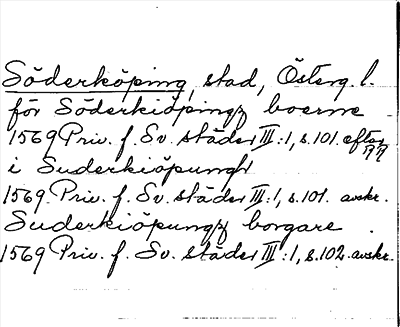 Söderköping, stad, Österg. l.
för Söderkiöpingz boerne
1569 Priv. f. Sv. städer III:1, s. 101. efter
i Suderkiöpungh
1569. Priv. f. Sv. städer III:1, s. 101. avskr.
Suderkiöpungz borgare.
1569 Priv. f. Sv. städer III:1, s. 102. avskr.